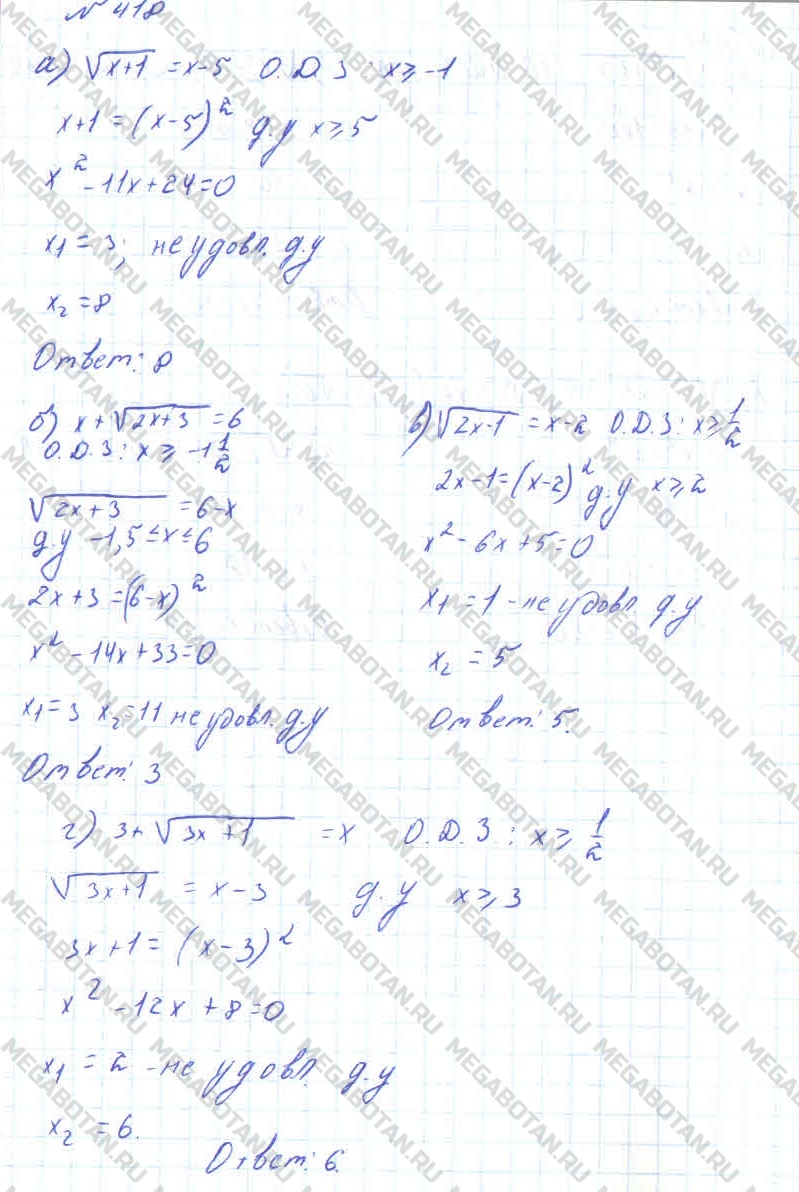 № 418
а) √x+1 = x-5 О.Д.З : x ≥ -1
x+1 = (x-5)² д.у x ≥ 5
x² - 11x + 24 = 0
x₁ = 3; не удовл. д.у
x₂ = 8
Ответ: 8
б) x + √2x+3 = 6
О.Д.З : x ≥ -1 1/2
√2x+3 = 6-x
д.у -1,5 ≤ x ≤ 6
2x+3 = (6-x)²
x² - 14x + 33 = 0
x₁ = 3 x₂ = 11 не удовл. д.у
Ответ: 3
в) √2x-1 = x-2 О.Д.З : x ≥ 1/2
2x-1 = (x-2)² д.у x ≥ 2
x² - 6x + 5 = 0
x₁ = 1 - не удовл. д.у
x₂ = 5
Ответ: 5.
г) 3 + √3x+1 = x О.Д.З. : x ≥ 1/2
√3x+1 = x-3 д.у x ≥ 3
3x+1 = (x-3)²
x² - 12x + 8 = 0
x₁ = 2 - не удовл. д.у
x₂ = 6.
Ответ: 6.
MEGABOTAN.RU